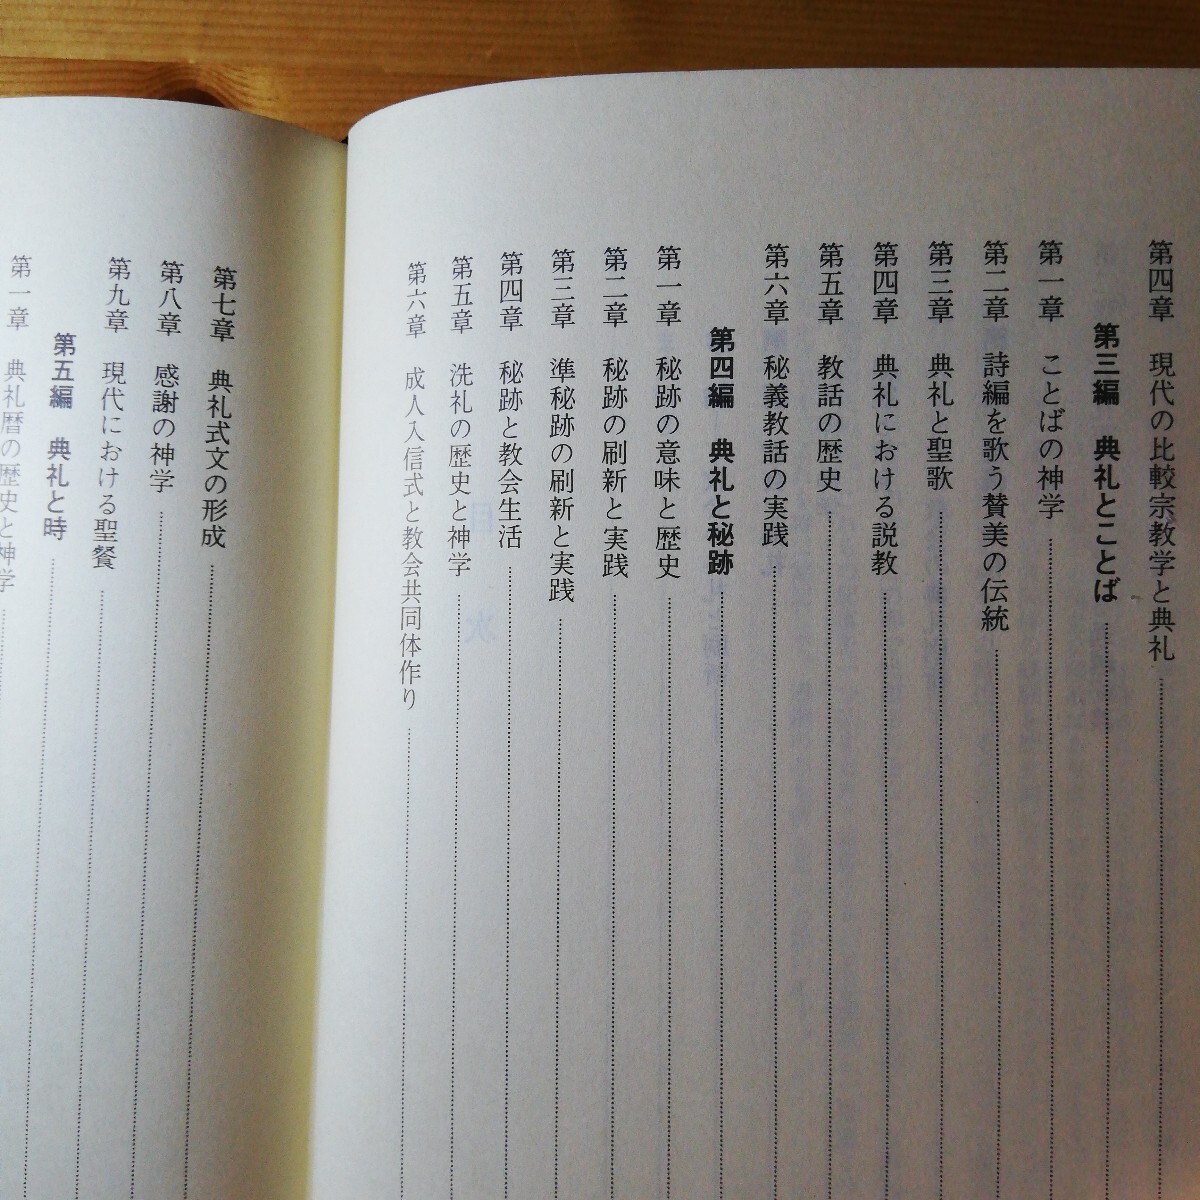 第四章 現代の比較宗教学と典礼
第三編 典礼とことば
第一章 ことばの神学
第二章 詩編を歌う賛美の伝統
第三章 典礼と聖歌
第四章 典礼における説教
第五章 教話の歴史
第六章 秘義教話の実践
第四編 典礼と秘跡
第一章 秘跡の意味と歴史
第二章 秘跡の刷新と実践
第三章 準秘跡の刷新と実践
第四章 秘跡と教会生活
第五章 洗礼の歴史と神学
第六章 成人入信式と教会共同体作り
第七章 典礼式文の形成
第八章 感謝の神学
第九章 現代における聖餐
第五編 典礼と時
第一章 典礼暦の歴史と神学